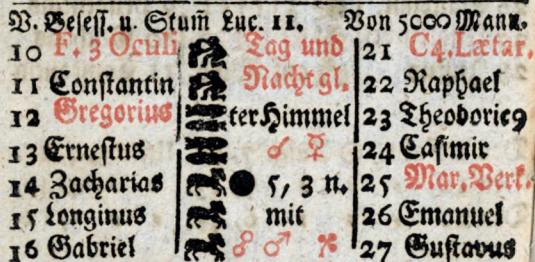 V. Beseſſ. u. Stum̃ Luc. 11. Von 5000 Mann.
10 F. 3 Oculi Tag und 21 C4. Lætar.
11 Conſtantin Nacht gl. 22 Raphael
12 Gregorius ter Himmel 23 Theodoricꝰ
13 Erneſtus ♂ ☿ 24 Caſimir
14 Zacharias ● 5, 3 n. 25 Mar. Verk.
15 Longinus mit 26 Emanuel
16 Gabriel ☍ ♂ 27 Guſtavus